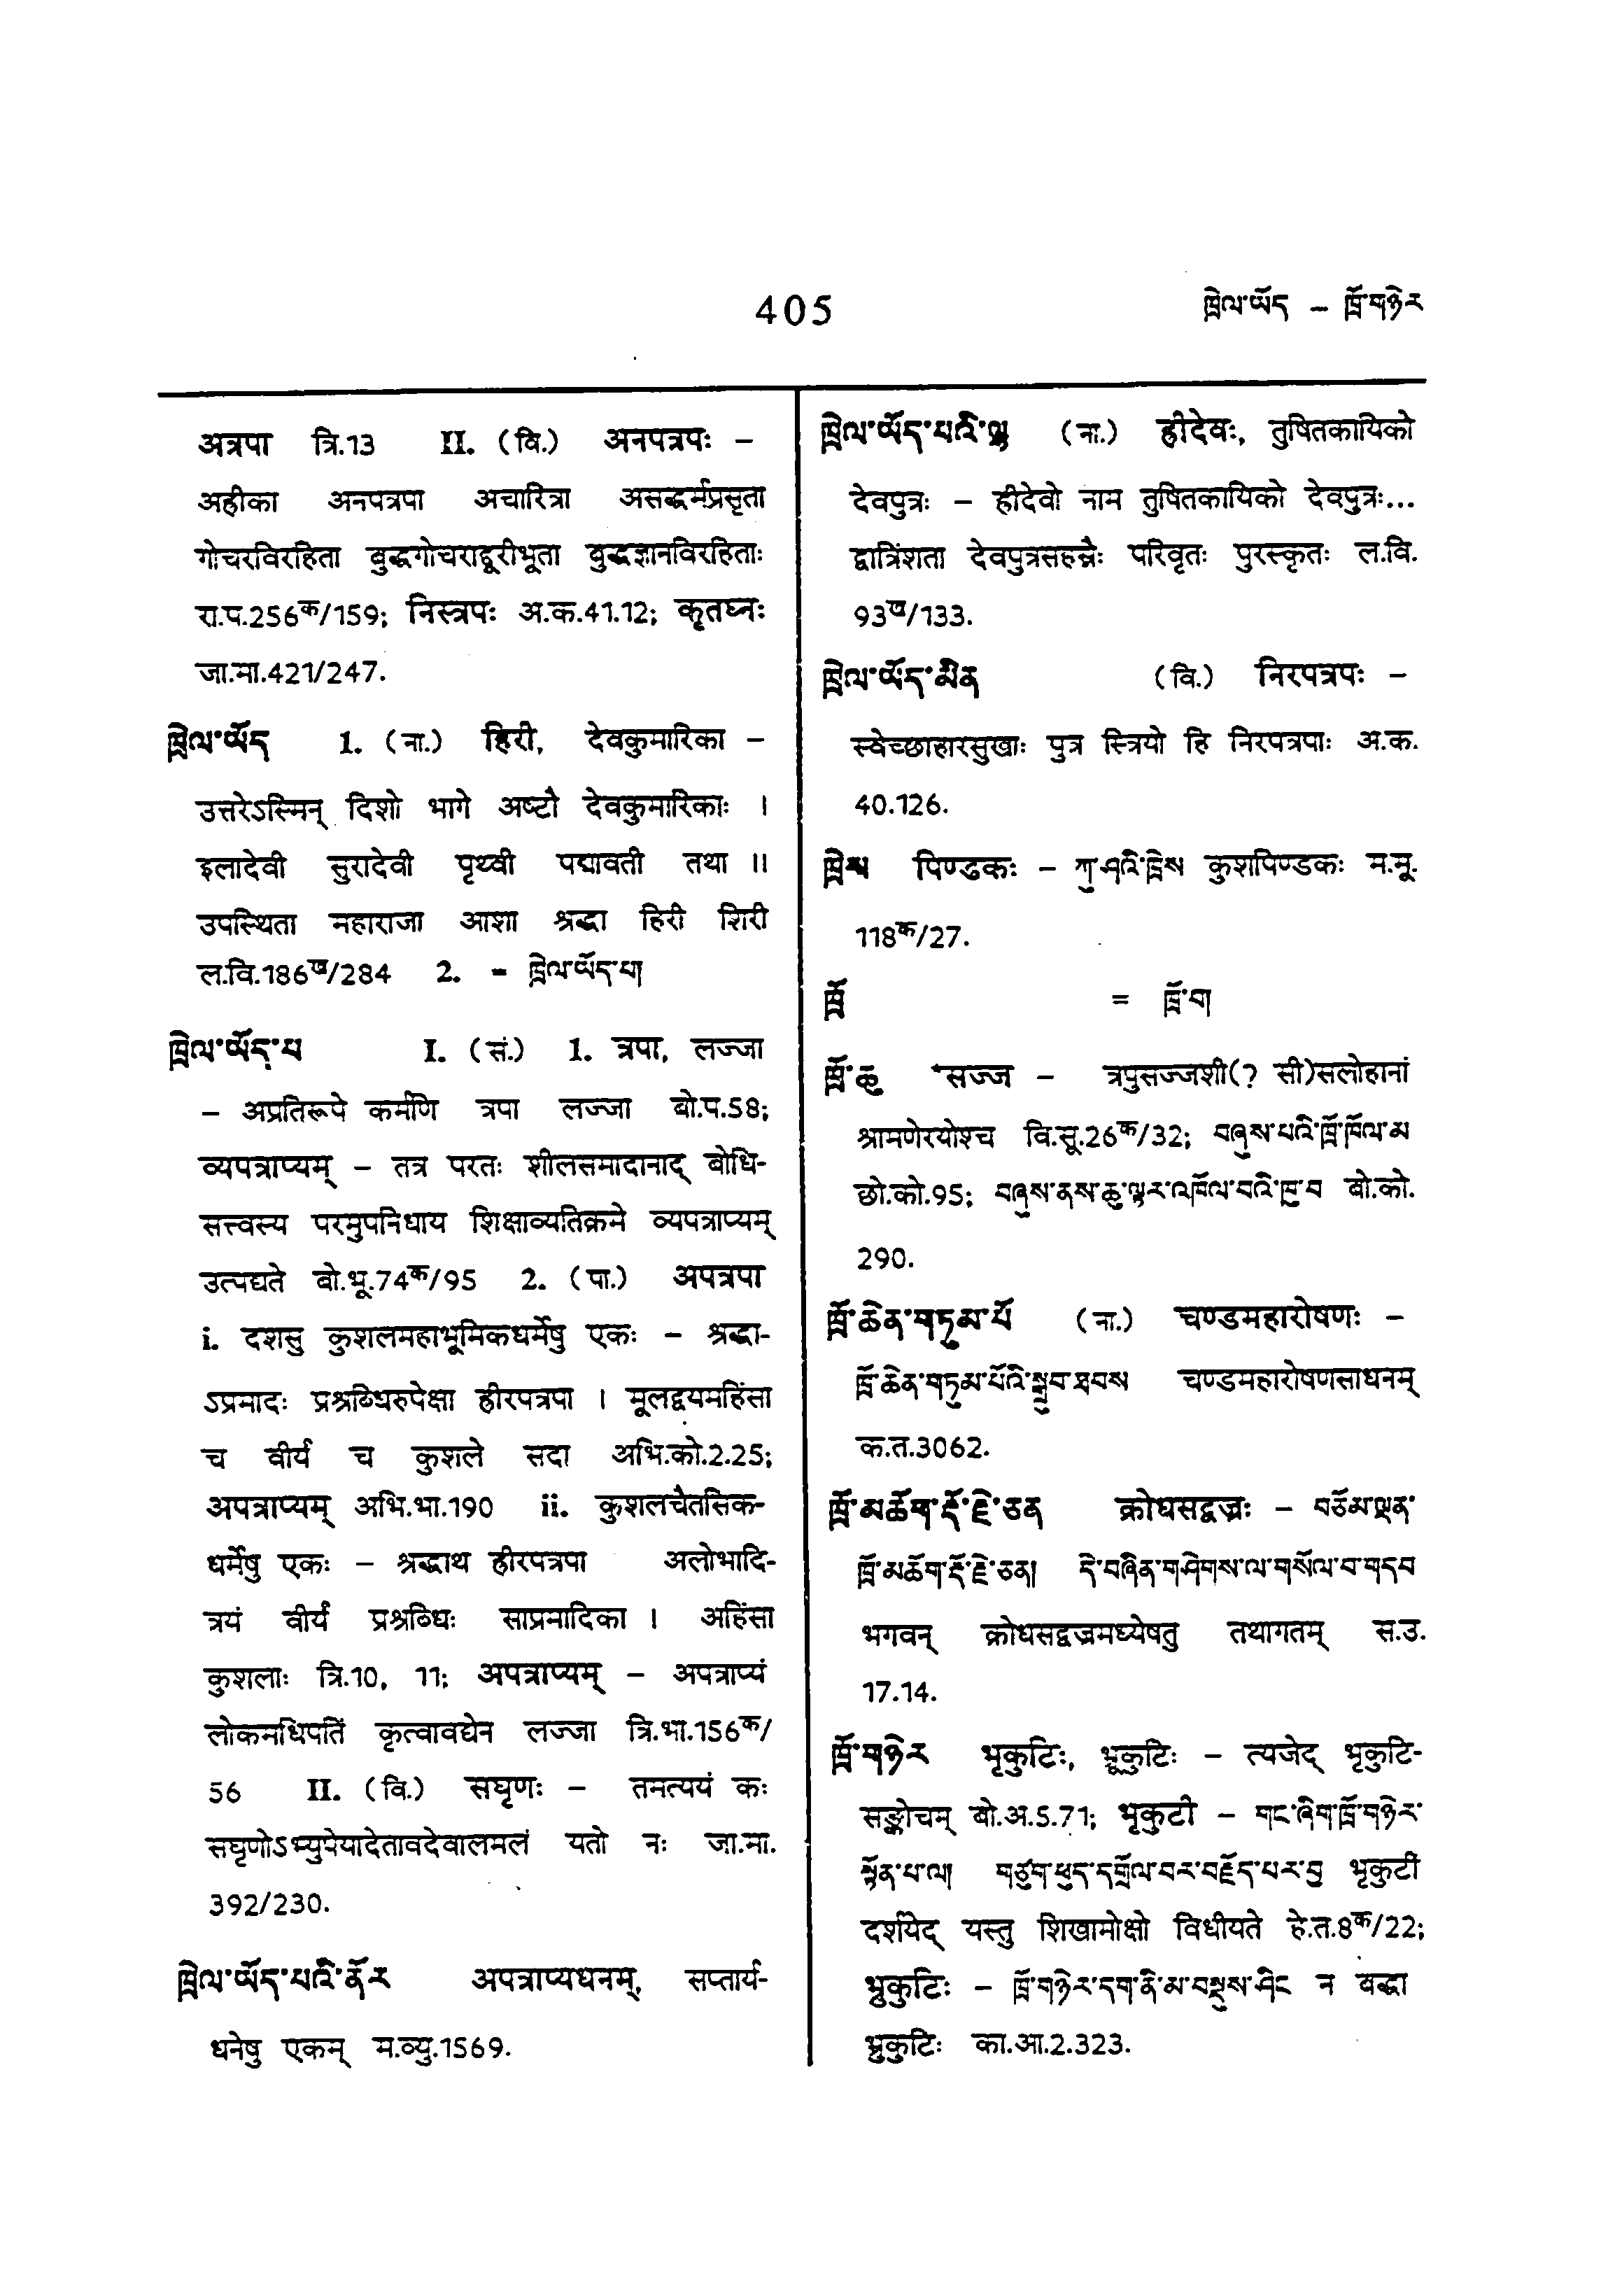 405
ཁྲེལ་ཡོད – ཁྲོ་གཉེར
अत्रपा त्रि.13 II. (वि.) अनपत्रपः –
अह्रीका अनपत्रपा अचारित्रा असद्धर्मप्रसृता
गोचरविरहिता बुद्धगोचराद्दूरीभूता बुद्धज्ञानविरहिताः
रा.प.256क/159; निस्त्रपः अ.क.41.12; कृतघ्नः
जा.मा.421/247.
ཁྲེལ་ཡོད 1. (ना.) हिरी, देवकुमारिका –
उत्तरेऽस्मिन् दिशो भागे अष्टौ देवकुमारिकाः ।
इलादेवी सुरादेवी पृथ्वी पद्मावती तथा ॥
उपस्थिता महाराजा आशा श्रद्धा हिरी शिरी
ल.वि.186ख/284 2. = ཁྲེལ་ཡོད་པ།
ཁྲེལ་ཡོད་པ I. (सं.) 1. त्रपा, लज्जा
– अप्रतिरूपे कर्मणि त्रपा लज्जा बो.प.58;
व्यपत्राप्यम् – तत्र परतः शीलसमादानाद् बोधि-
सत्त्वस्य परमुपनिधाय शिक्षाव्यतिक्रमे व्यपत्राप्यम्
उत्पद्यते बो.भू.74क/95 2. (पा.) अपत्रपा
i. दशसु कुशलमहाभूमिकधर्मेषु एकः – श्रद्धा-
ऽप्रमादः प्रश्रब्धिरुपेक्षा ह्रीरपत्रपा । मूलद्वयमहिंसा
च वीर्यं च कुशले सदा अभि.को.2.25;
अपत्राप्यम् अभि.भा.190 ii. कुशलचैतसिक-
धर्मेषु एकः – श्रद्धाथ ह्रीरपत्रपा अलोभादि-
त्रयं वीर्यं प्रश्रब्धिः साप्रमादिका । अहिंसा
कुशलाः त्रि.10, 11; अपत्राप्यम् – अपत्राप्यं
लोकमधिपतिं कृत्वावद्येन लज्जा त्रि.भा.156क/
56 II. (वि.) सघृणः – तमत्ययं कः
सघृणोऽभ्युपेयादेतावदेवालमलं यतो नः जा.मा.
392/230.
ཁྲེལ་ཡོད་པའི་ནོར अपत्राप्यधनम्, सप्तार्य-
धनेषु एकम् म.व्यु.1569.
ཁྲེལ་ཡོད་པའི་ལྷ (ना.) ह्रीदेवः, तुषितकायिको
देवपुत्रः – ह्रीदेवो नाम तुषितकायिको देवपुत्रः...
द्वात्रिंशता देवपुत्रसहस्रैः परिवृतः पुरस्कृतः ल.वि.
93ख/133.
ཁྲེལ་ཡོད་མིན (वि.) निरपत्रपः –
स्वेच्छाहारसुखाः पुत्र स्त्रियो हि निरपत्रपाः अ.क.
40.126.
ཁྲེས पिण्डकः – ཀུ་ཤའི་ཁྲེས कुशपिण्डकः म.मू.
118क/27.
ཁྲོ = ཁྲོ་བ།
ཁྲོ་ཆུ *सज्ज – त्रपुसज्जशी(? सी)सलोहानां
श्रामणेरयोश्च वि.सू.26क/32; བཞུས་པའི་ཁྲོ་ཁོལ་མ
छो.को.95; བཞུས་ནས་ཆུ་ལྟར་འཁོལ་བའི་ཁུ་བ बो.को.
290.
ཁྲོ་ཆེན་གཏུམ་པོ (ना.) चण्डमहारोषणः –
ཁྲོ་ཆེན་གཏུམ་པོའི་སྒྲུབ་ཐབས चण्डमहारोषणसाधनम्
क.त.3062.
ཁྲོ་མཆོག་རྡོ་རྗེ་ཅན क्रोधसद्वज्रः – བཅོམ་ལྡན་
ཁྲོ་མཆོག་རྡོ་རྗེ་ཅན། དེ་བཞིན་གཤེགས་ལ་གསོལ་བ་གདབ
भगवन् क्रोधसद्वज्रमध्येषतु तथागतम् स.उ.
17.14.
ཁྲོ་གཉེར भृकुटिः, भ्रूकुटिः – त्यजेद् भृकुटि-
सङ्कोचम् बो.अ.5.71; भृकुटी – གང་ཞིག་ཁྲོ་གཉེར་
སྟོན་པ་ལ། གཙུག་ཕུད་དགྲོལ་བར་བརྗོད་པར་བྱ भृकुटीं
दर्शयेद् यस्तु शिखामोक्षो विधीयते हे.त.8क/22;
भ्रुकुटिः – ཁྲོ་གཉེར་དག་ནི་མ་བསྡུས་ཤིང न बद्धा
भ्रुकुटिः का.आ.2.323.